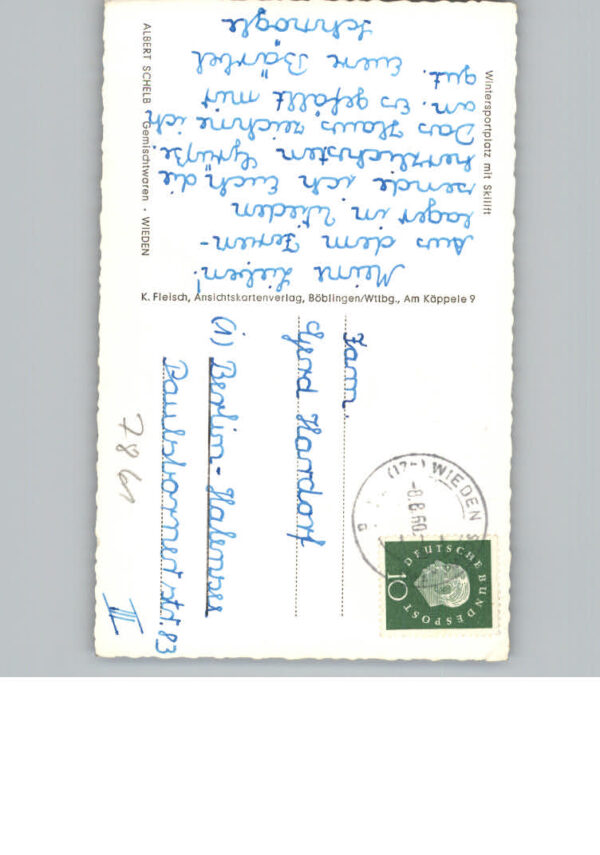 Wintersportplatz mit Skilift
ALBERT SCHELB Gemischtwaren · WIEDEN
Meine Lieben!
Aus dem Ferien-
lager in Wieden
sende ich Euch die
herzlichsten Grüße.
Das Haus zeichne ich
an. Es gefällt mir
gut. Eure Bärbel
Schmögle
K. Fleisch, Ansichtskartenverlag, Böblingen/Wttbg., Am Käppele 9
(17-) WIEDEN
-8.8.60-
DEUTSCHE BUNDESPOST
10
Fam.
Gerd Hardorf
(1) Berlin-Halensee
Paulsborner Str. 83
III
7861